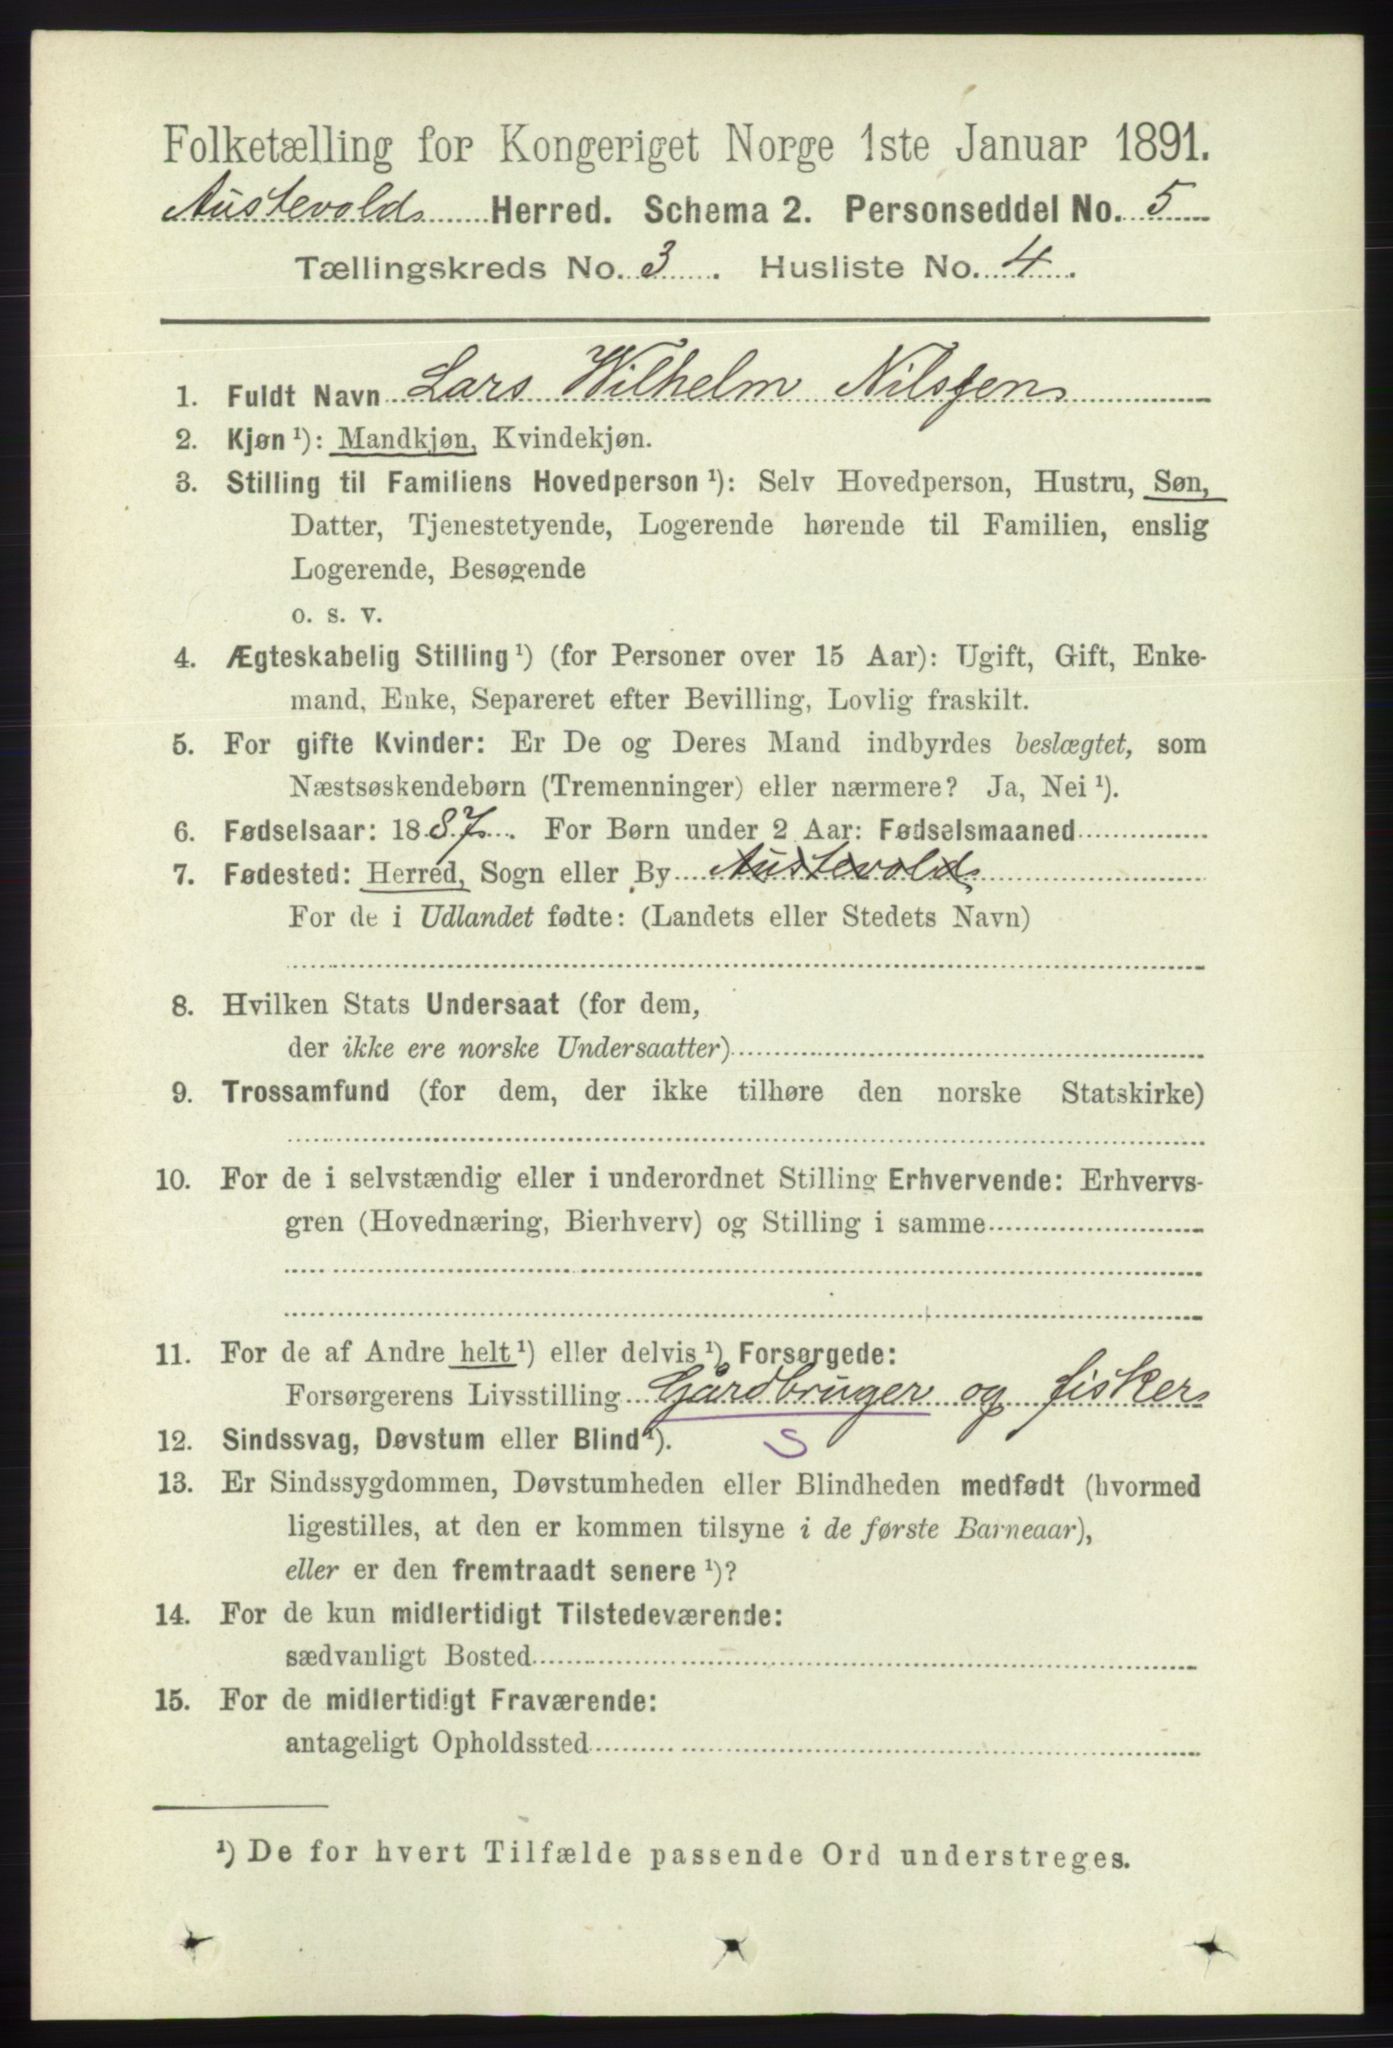 Folketælling for Kongeriget Norge 1ste Januar 1891.
Austevold Herred. Schema 2. Personseddel No. 5
Tællingskreds No. 3. Husliste No. 4.
1. Fuldt Navn Lars Wilhelm Nilssen
2. Kjøn ¹): Mandkjøn, Kvindekjøn.
3. Stilling til Familiens Hovedperson ¹): Selv Hovedperson, Hustru, Søn,
Datter, Tjenestetyende, Logerende hørende til Familien, enslig
Logerende, Besøgende
o. s. v.
4. Ægteskabelig Stilling ¹) (for Personer over 15 Aar): Ugift, Gift, Enke-
mand, Enke, Separeret efter Bevilling, Lovlig fraskilt.
5. For gifte Kvinder: Er De og Deres Mand indbyrdes beslægtet, som
Næstsøskendebørn (Tremenninger) eller nærmere? Ja, Nei ¹).
6. Fødselsaar: 1887. For Børn under 2 Aar: Fødselsmaaned
7. Fødested: Herred, Sogn eller By Austevold
For de i Udlandet fødte: (Landets eller Stedets Navn)
8. Hvilken Stats Undersaat (for dem,
der ikke ere norske Undersaatter)
9. Trossamfund (for dem, der ikke tilhøre den norske Statskirke)
10. For de i selvstændig eller i underordnet Stilling Erhvervende: Erhvervs-
gren (Hovednæring, Bierhverv) og Stilling i samme
11. For de af Andre helt ¹) eller delvis ¹) Forsørgede:
Forsørgerens Livsstilling Gårdbruger og fisker
12. Sindssvag, Døvstum eller Blind ¹). S
13. Er Sindssygdommen, Døvstumheden eller Blindheden medfødt (hvormed
ligestilles, at den er kommen tilsyne i de første Barneaar),
eller er den fremtraadt senere ¹)?
14. For de kun midlertidigt Tilstedeværende:
sædvanligt Bosted
15. For de midlertidigt Fraværende:
antageligt Opholdssted
¹) De for hvert Tilfælde passende Ord understreges.